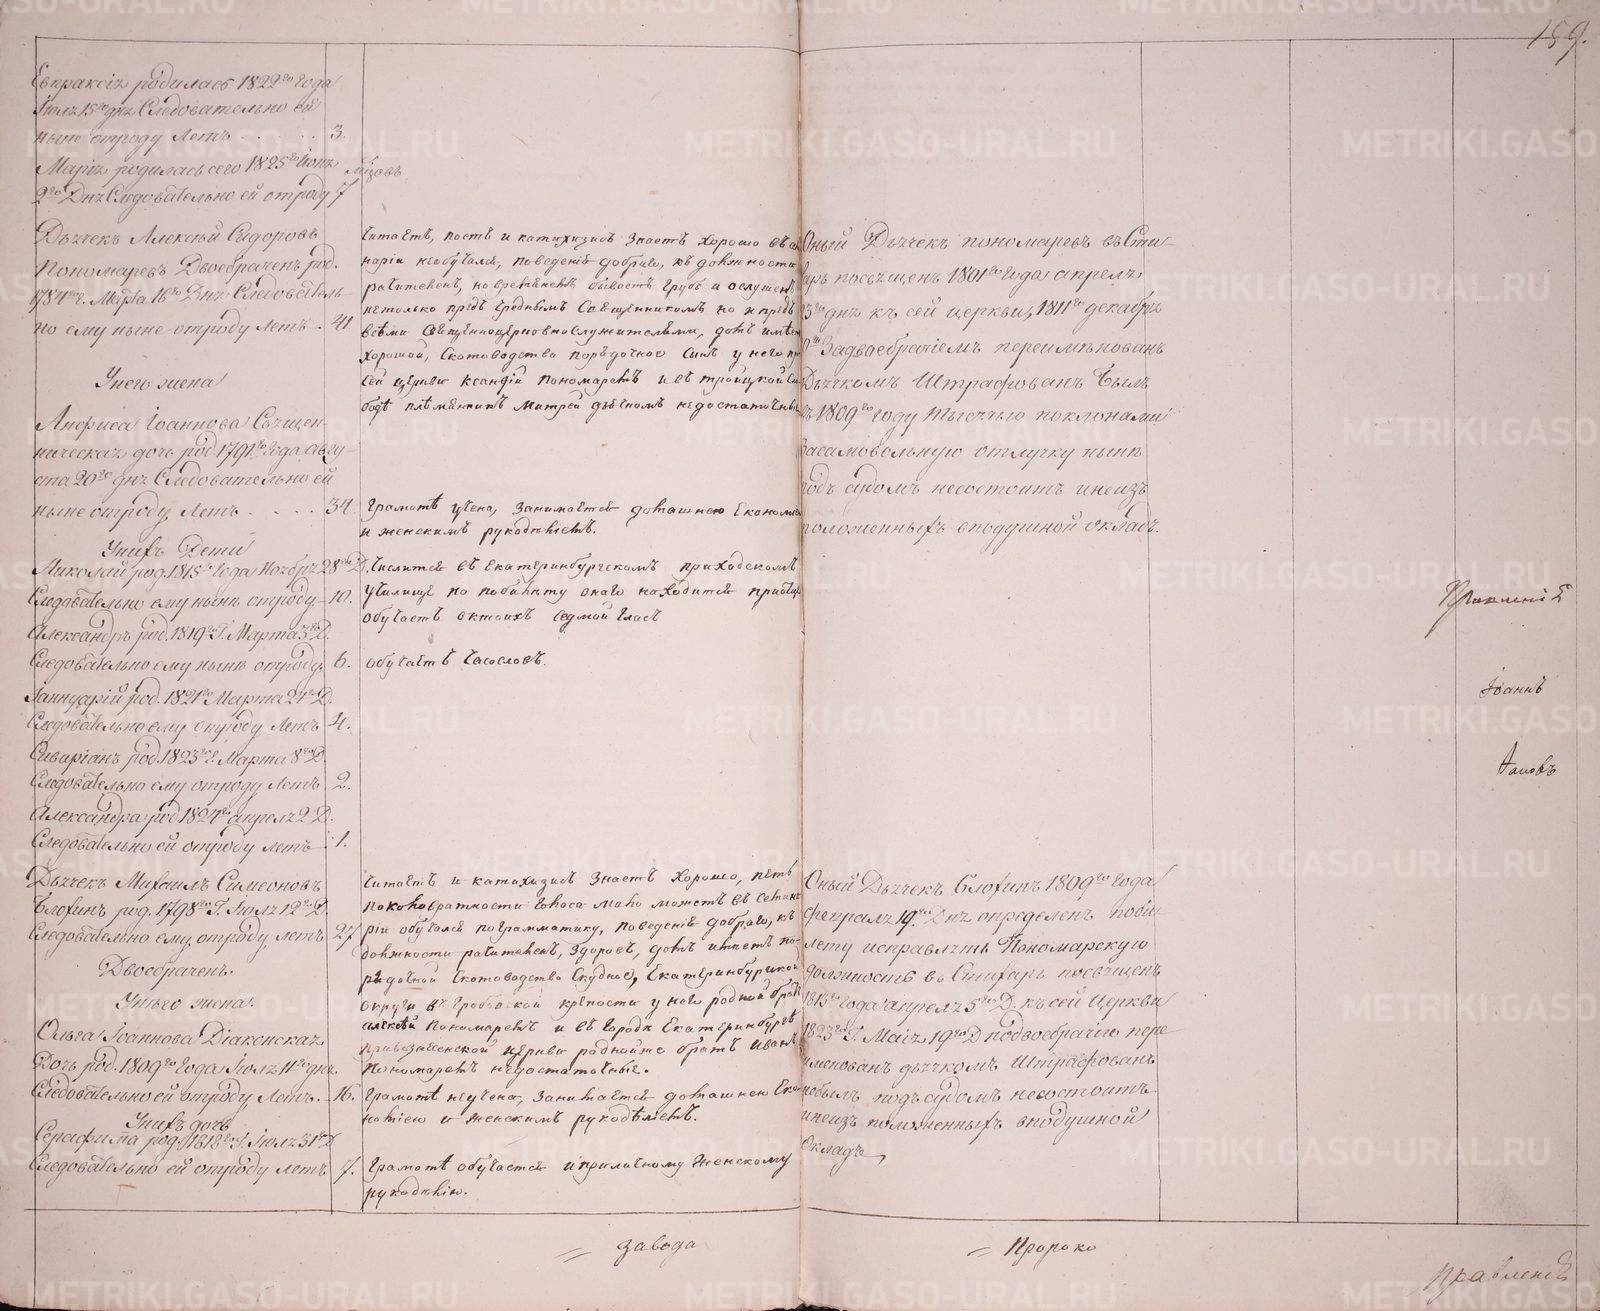 159.
Евпраксія родилась 1822го года
Іюля 15го дня Следовательно ей
ныне отроду Летъ . . . . . 3.
Марія родилась сего 1825го Іюня
2го Дня Следовательно ей отроду 7 мѣсяцовъ
Дьячекъ Алексѣй Сидоровъ
Пономаревъ Двоебраченъ род.
1784го г. Марта 16го Дня Следователь-
но ему ныне отроду Летъ . 41
У него жена
Анфиса Іоаннова Священ-
ническая дочь род 1791го Года авгу-
ста 20го дня Следовательно ей
ныне отроду Летъ . . . . 34
У нихъ Дети
Николай род. 1815го Года Ноября 28го Д.
Следовательно ему нынѣ отроду 10.
Александръ род. 1819го Г. Марта 3го Д.
Следовательно ему нынѣ отроду 6.
Іаннуарій род. 1821го Марта 21го Д.
Следовательно ему отроду Летъ 4.
род. 1823го г. Марта 8го Д.
Следовательно ему отроду Летъ 2.
Александра род 1824го апреля 2 Д.
Следовательно ей отроду Летъ 1.
Дьячекъ Михаилъ Симеоновъ
род. 1798го Г. Іюля 12го Д.
Следовательно ему отроду Летъ 27
Двоебраченъ.
У него жена
Ольга Іоаннова Діаконская
Дочь род. 1809го Года Іюля 11го дня
Следовательно ей отроду Летъ. 16.
У нихъ дочь
Серафима род. 1818го Г. Іюля 31го Д
Следовательно ей отроду Летъ 7.
Читаетъ, поетъ и катихизисъ Знаетъ Хорошо въ семи
наріи необучался, поведенія добраго, къ должности
рачителенъ, но временемъ бываетъ грубъ и ослушенъ
нетолько предъ Священникомъ но и предъ
всѣми Священноцерковнослужителями, домъ имѣетъ
хорошой, Скотоводство порядочное Сынъ у него при
сей церкви Пономаревъ и въ троицкой Сло
бодѣ племянникъ Матфей дьячкомъ недостаточные
Грамотѣ учена, занимается домашнею Економіею
и женскимъ рукодѣліемъ.
Числится въ Екатеринбургскомъ приходскомъ
Училище по побилету онаго находится при отце
обучаетъ октоихъ седмой гласъ
обучаетъ Часословъ.
Читаетъ и катихизисъ Знаетъ Хорошо, пѣть
по головратности голоса мало можетъ въ семина
ріи обучался пограмматику, поведенія добраго, къ
должности рачителенъ, здоровъ, домъ имѣетъ по-
рядочной Скотоводство Скудное, Екатеринбургской
округи въ Гробовской крѣпости у него родной братъ
алексѣй Пономаревъ и въ городѣ Екатеринбургѣ
при вознесенской церкви роднойже братъ Иванъ
Пономаревъ недостаточные.
Грамотѣ неучена, занимается домашнею Еко
номіею и женскимъ рукодѣліемъ.
Грамотѣ обучается и приличному Женскому
рукодѣлію.
Оный Дьячекъ пономаревъ въ Сти-
харь посвященъ 1801го Года апреля
3го дня къ сей церкви, 1811го декабря
За двоебрачіемъ переименованъ
Дьячкомъ Штрафованъ былъ
въ 1809го году тысячью поклонами
за самовольную отлучку нынѣ
подъ судомъ несостоитъ и неизъ
положенныхъ в подушной окладъ.
Оный Дьячекъ 1809го Года
февраля 19го Дня определенъ поби-
лету исправлять Пономарскую
должность въ Стихарь посвященъ
1815го Года апреля 5го Д. къ сей Церкви
1823го Г. Маія 19го Д по двоебрачію пере
именованъ дьячкомъ Штрафованъ
небылъ подъ судомъ несостоитъ
и неизъ положенныхъ в подушной
Окладъ
Іоаннъ
завода
Пророко
Правленія
METRIKI.GASO-URAL.RU